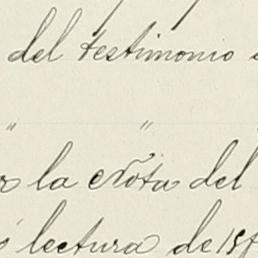 del testimonio
" "
la Nota del
lectura de 15